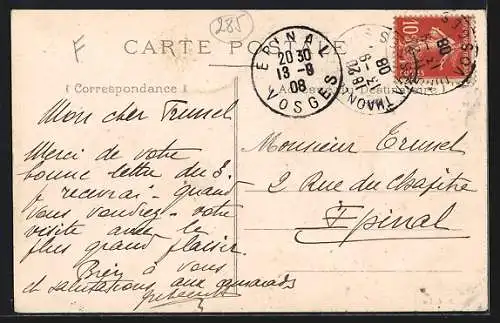 285
F
CARTE POSTALE
EPINAL
20 30
13 - 8
08
VOSGES
THAON
VOSGES
18 20
13 - 8
08
10c
( Correspondance )
Adresse du Destinataire
Mon cher Trunel
Merci de votre
bonne lettre du 3.
je recevrai quand
vous voudrez votre
visite avec le
plus grand plaisir.
Bien à vous
et salutations aux camarades
Monsieur Trunel
2 Rue du Chapitre
Epinal